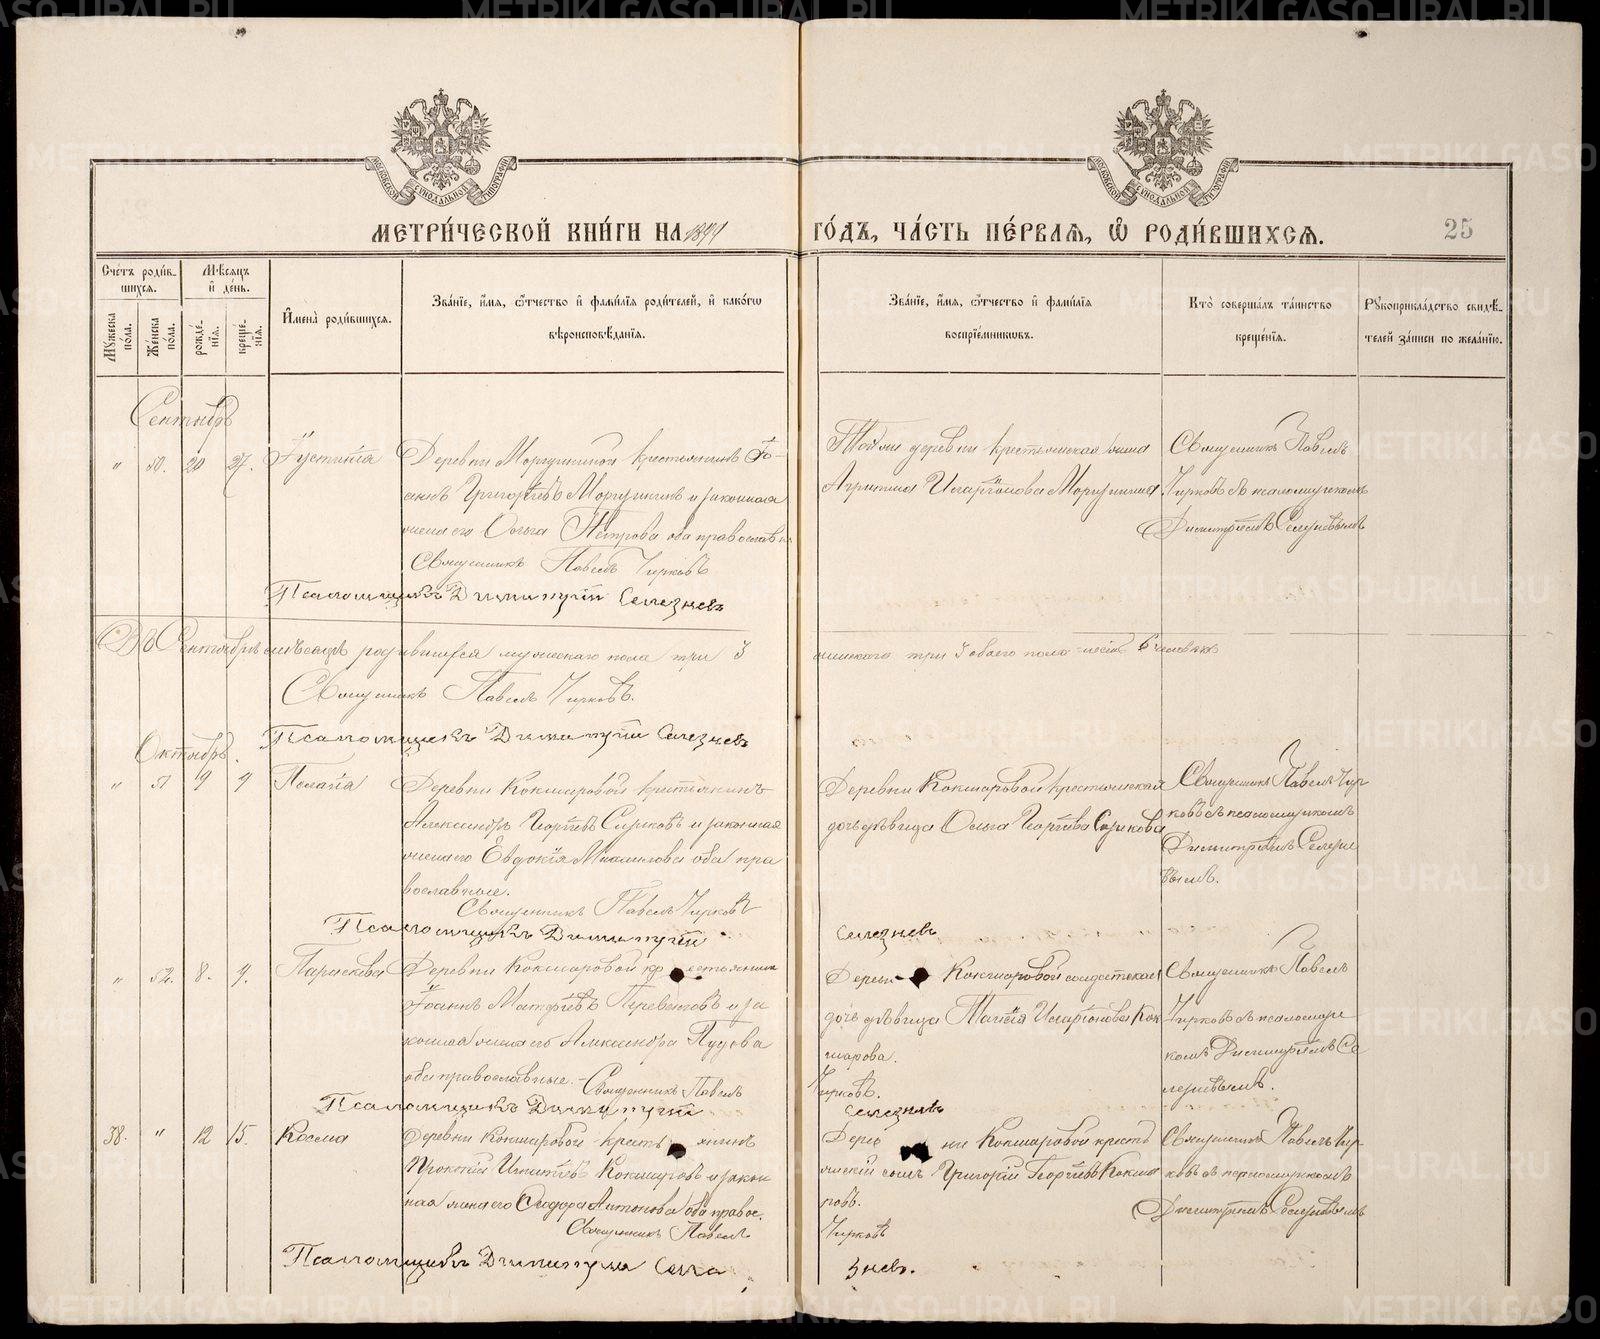 МЕТРИ́ЧЕСКОЙ КНИ́ГИ НА 1891 ГО́ДЪ, ЧА́СТЬ ПЕ́РВАѦ, Ѽ РОДИ́ВШИХСѦ.
25
Сче́тъ роди́в-
шихсѧ.
Мѣ́сѧцъ
и҆ де́нь.
И҆мена̀ роди́вшихсѧ.
Зва́нїе, и҆́мѧ, ѻ҆́тчество и҆ фами́лїѧ роди́телей, и҆ како́гѡ
вѣроисповѣ́данїѧ.
Зва́нїе, и҆́мѧ, ѻ҆́тчество и҆ фами́лїѧ
воспрїе́мникѡвъ.
Кто̀ соверша́лъ та́инство
креще́нїѧ.
Рꙋкоприкла́дство свидѣ́-
телей за́писи по жела́нїю.
Мꙋжеска
по́ла.
Же́нска
по́ла.
рожде́-
нїѧ.
креще́-
нїѧ.
Сентябрь
" 50. 20 27. Іустинia
Деревни Моргуниной крестьянинъ Іо-
аннъ Григоріевъ Моргунинъ и законная
жена его Ольга Петрова оба православн
Священникъ Павелъ Чирковъ
Псаломщикъ Димитрій Селезневъ
Той же деревни крестьянская жена
Агрипина Иларіонова Моргунина
Священникъ Павелъ
Чирковъ съ псаломщикомъ
Димитріемъ Селезневымъ
Въ Сентябрѣ мѣсяцѣ родившихся мужескаго пола три 3
женскаго три 3 обоего пола шесть 6 человѣкъ
Священникъ Павелъ Чирковъ.
Псаломщикъ Димитрій Селезневъ
Октябрь.
" 51 9 9 Пелагія
Деревни Кокшаровой крестьянинъ
Александръ Георгіевъ Суриковъ и законная
жена его Евдокія Михаилова оба пра
вославные.
Священникъ Павелъ Чирковъ
Псаломщикъ Димитрій Селезневъ
Деревни Кокшаровой крестьянская
дочь дѣвица Ольга Георгіева Сурикова
Священникъ Павелъ Чир
ковъ съ псаломщикомъ
Димитріемъ Селезне
вымъ.
" 52. 8. 9. Параскева
Деревни Кокшаровой крестьянинъ
Іоаннъ Матѳіевъ и за
конная жена его Александра
оба православные. Священникъ Павелъ
Чирковъ.
Псаломщикъ Димитрій
Селезневъ
Деревни Кокшаровой солдатская
дочь дѣвица Таисія Иларіонова Кок
шарова.
Священникъ Павелъ
Чирковъ съ псаломщи
комъ Димитріемъ Се
лезневымъ.
38. " 12 15. Косма
Деревни Кокшаровой крестьянинъ
Прокопій Кокшаровъ и закон
ная жена его Ѳеодора Антонова оба правос.
Священникъ Павелъ
Чирковъ
Псаломщикъ Димитрій Селе
зневъ.
Деревни Кокшаровой кресть
янскій сынъ Григорій Георгіевъ Кокша
ровъ.
Священникъ Павелъ Чир
ковъ съ псаломщикомъ
Димитріемъ Селезневымъ